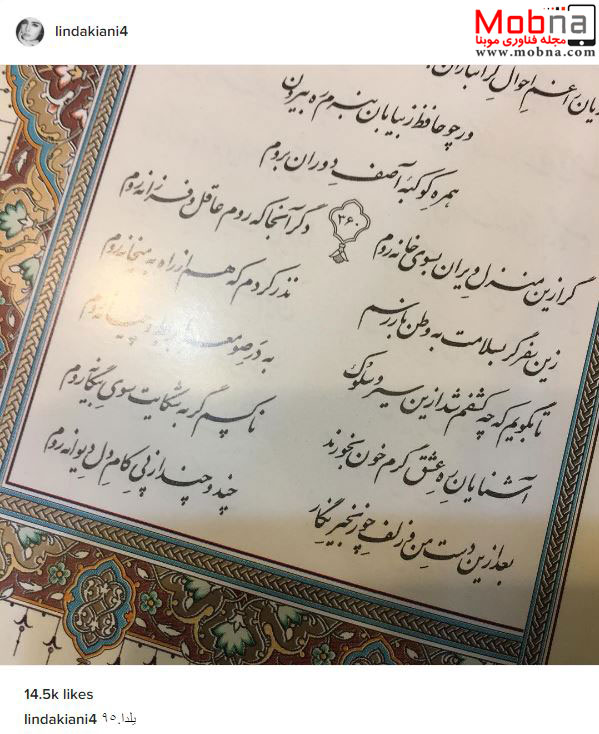 lindakiani4
Mobna
مجله فناوری موبنا
www.mobna.com
غم احوال گرانباران
ور چو حافظ ز بیابان نبرم ره بیرون
همره کوکبهٔ آصف دوران بروم
۳۶۰
گر ازین منزل ویران بسوی خانه روم
دگر آنجا که روم عاقل و فرزانه روم
زین سفر گر بسلامت به وطن باز رسم
نذر کردم که هم از راه به میخانه روم
تا بگویم که چه کشفم شد ازین سیر و سلوک
به در صومعه با بربط و پیمانه روم
آشنایان ره عشق گرم خون بخورند
ناکسم گر به شکایت سوی بیگانه روم
بعد ازین دست من و زلف چو زنجیر نگار
چند و چند از پی کام دل دیوانه روم
14.5k likes
lindakiani4 یلدا.۹۵